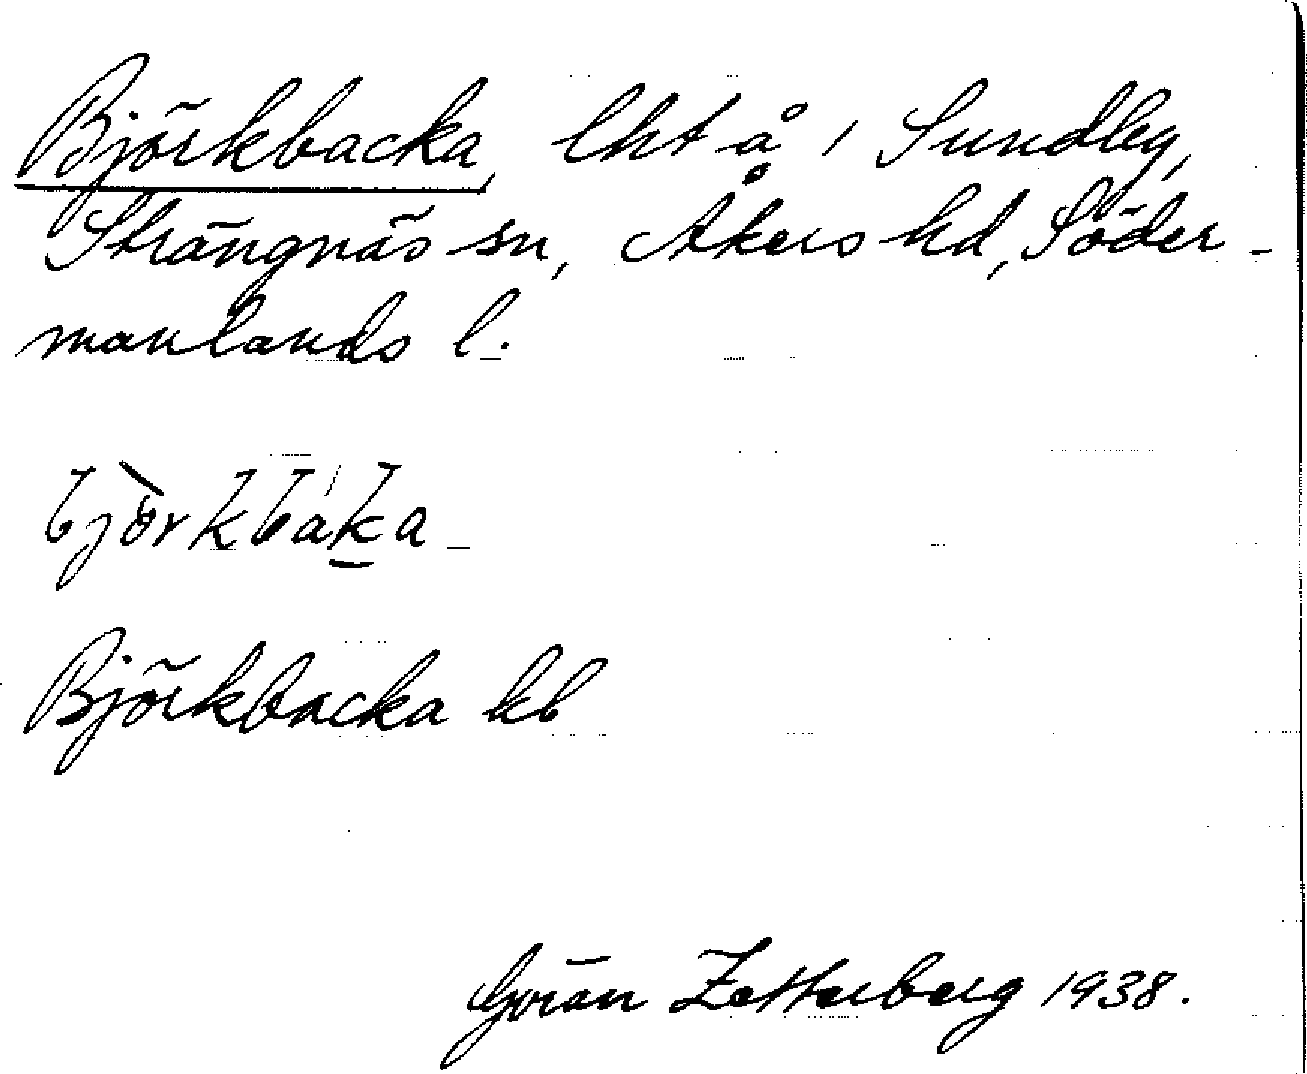 Björkbacka, lht å 1 Sundby,
Strängnäs sn, Åkers hd, Söder-
manlands l.
bjòrkbáka
Björkbacka kb
Göran Zetterberg 1938.